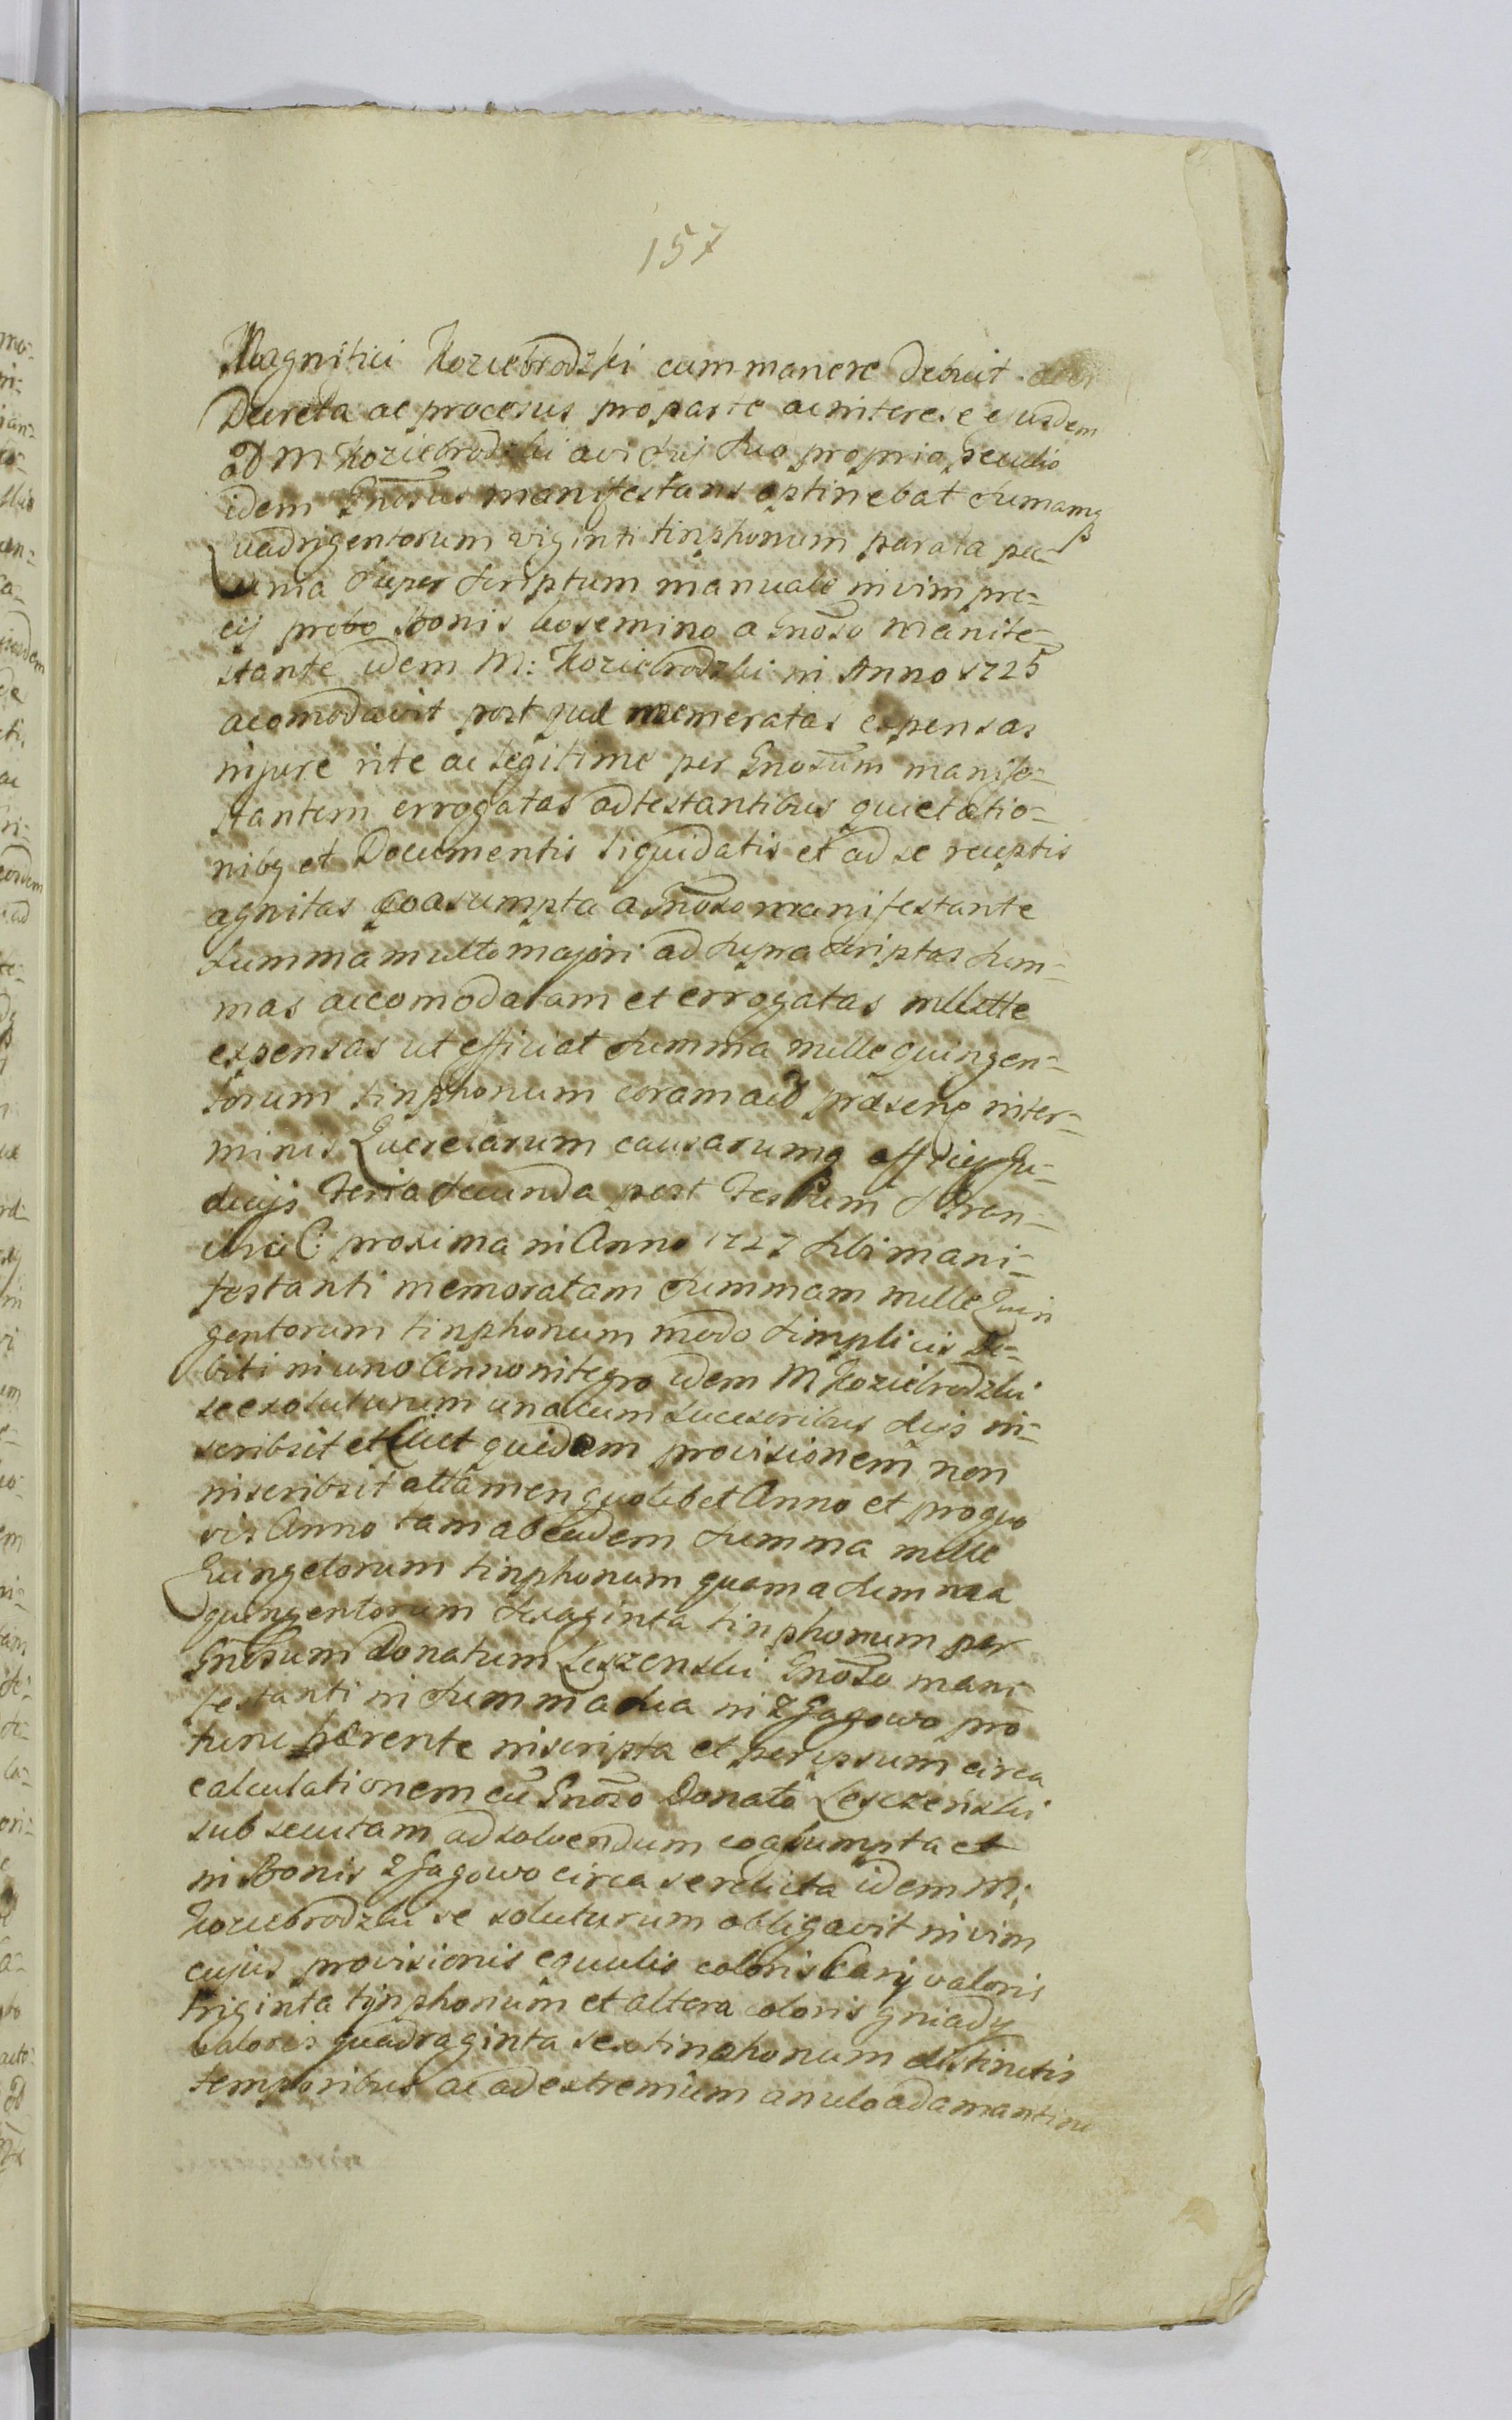 157
Magnifici Koziebrodzki cum manere debuit
Decreta ac procesus pro parte ac interese ejusdem
M Koziebrodzki suo proprio peculio
idem Gnosus manifestans optinebat sumamq
quadrigentorum viginti tinphonum parata pec-
unia super scriptum manuale in vim pre-
cij probo Bonis Kosemino a Gnoso manife-
stante idem M: Koziebrodzki in Anno 1725
acomodavit post quæ memeratas expensas
in jure rite ac legitime per Gnosum manife-
stantem errogatas adtestantibus quietatio-
nibq et Documentis liquidatis et ad se receptis
agnitas coasumpta a Gnoso manifestante
summa multo majori ad supra scriptas sum-
mas accomodatam et errogatas
expensas ut efficiat summa mille quingen-
torum tinphonum coram præsens in ter-
minis Querelarum causarumq officij Ju-
dicijs feria secunda post festum S Fran-
cisci C: proxima in Anno 1727 sibi mani-
festanti memoratam summam mille Quin
gentorum tinphonum modo simplicis De-
biti in uno Anno integro idem M Koziebrodzki
se exoluturum una cum sucesoribus suis in-
scribsit et licet quidem provisionem non
inscribsit attamen quolibet Anno et pro quo
vis Anno tam ab eadem summa mille
Quingetorum tinphonum quam a summa
quingentorum sexaginta tinphonum per
Gnosum Donatum Leszenski Gnoso mani
festanti in summa sua in Zgagowo pro
tunc hærente inscripta et per ipsum circa
calculationem cu Gnoso Donato Lesczenski
subsecutam ad solvendum coasumpta et
in Bonis Zgagowo circa se relicta idem M:
Koziebrodzki se soluturum obligavit in vim
cujus provisionis equulis coloris Karij valoris
triginta tynphonum et altera coloris gniady
valoris quadraginta sex tinphonum distinctis
temporibus ac ad extremum anulo adamantino